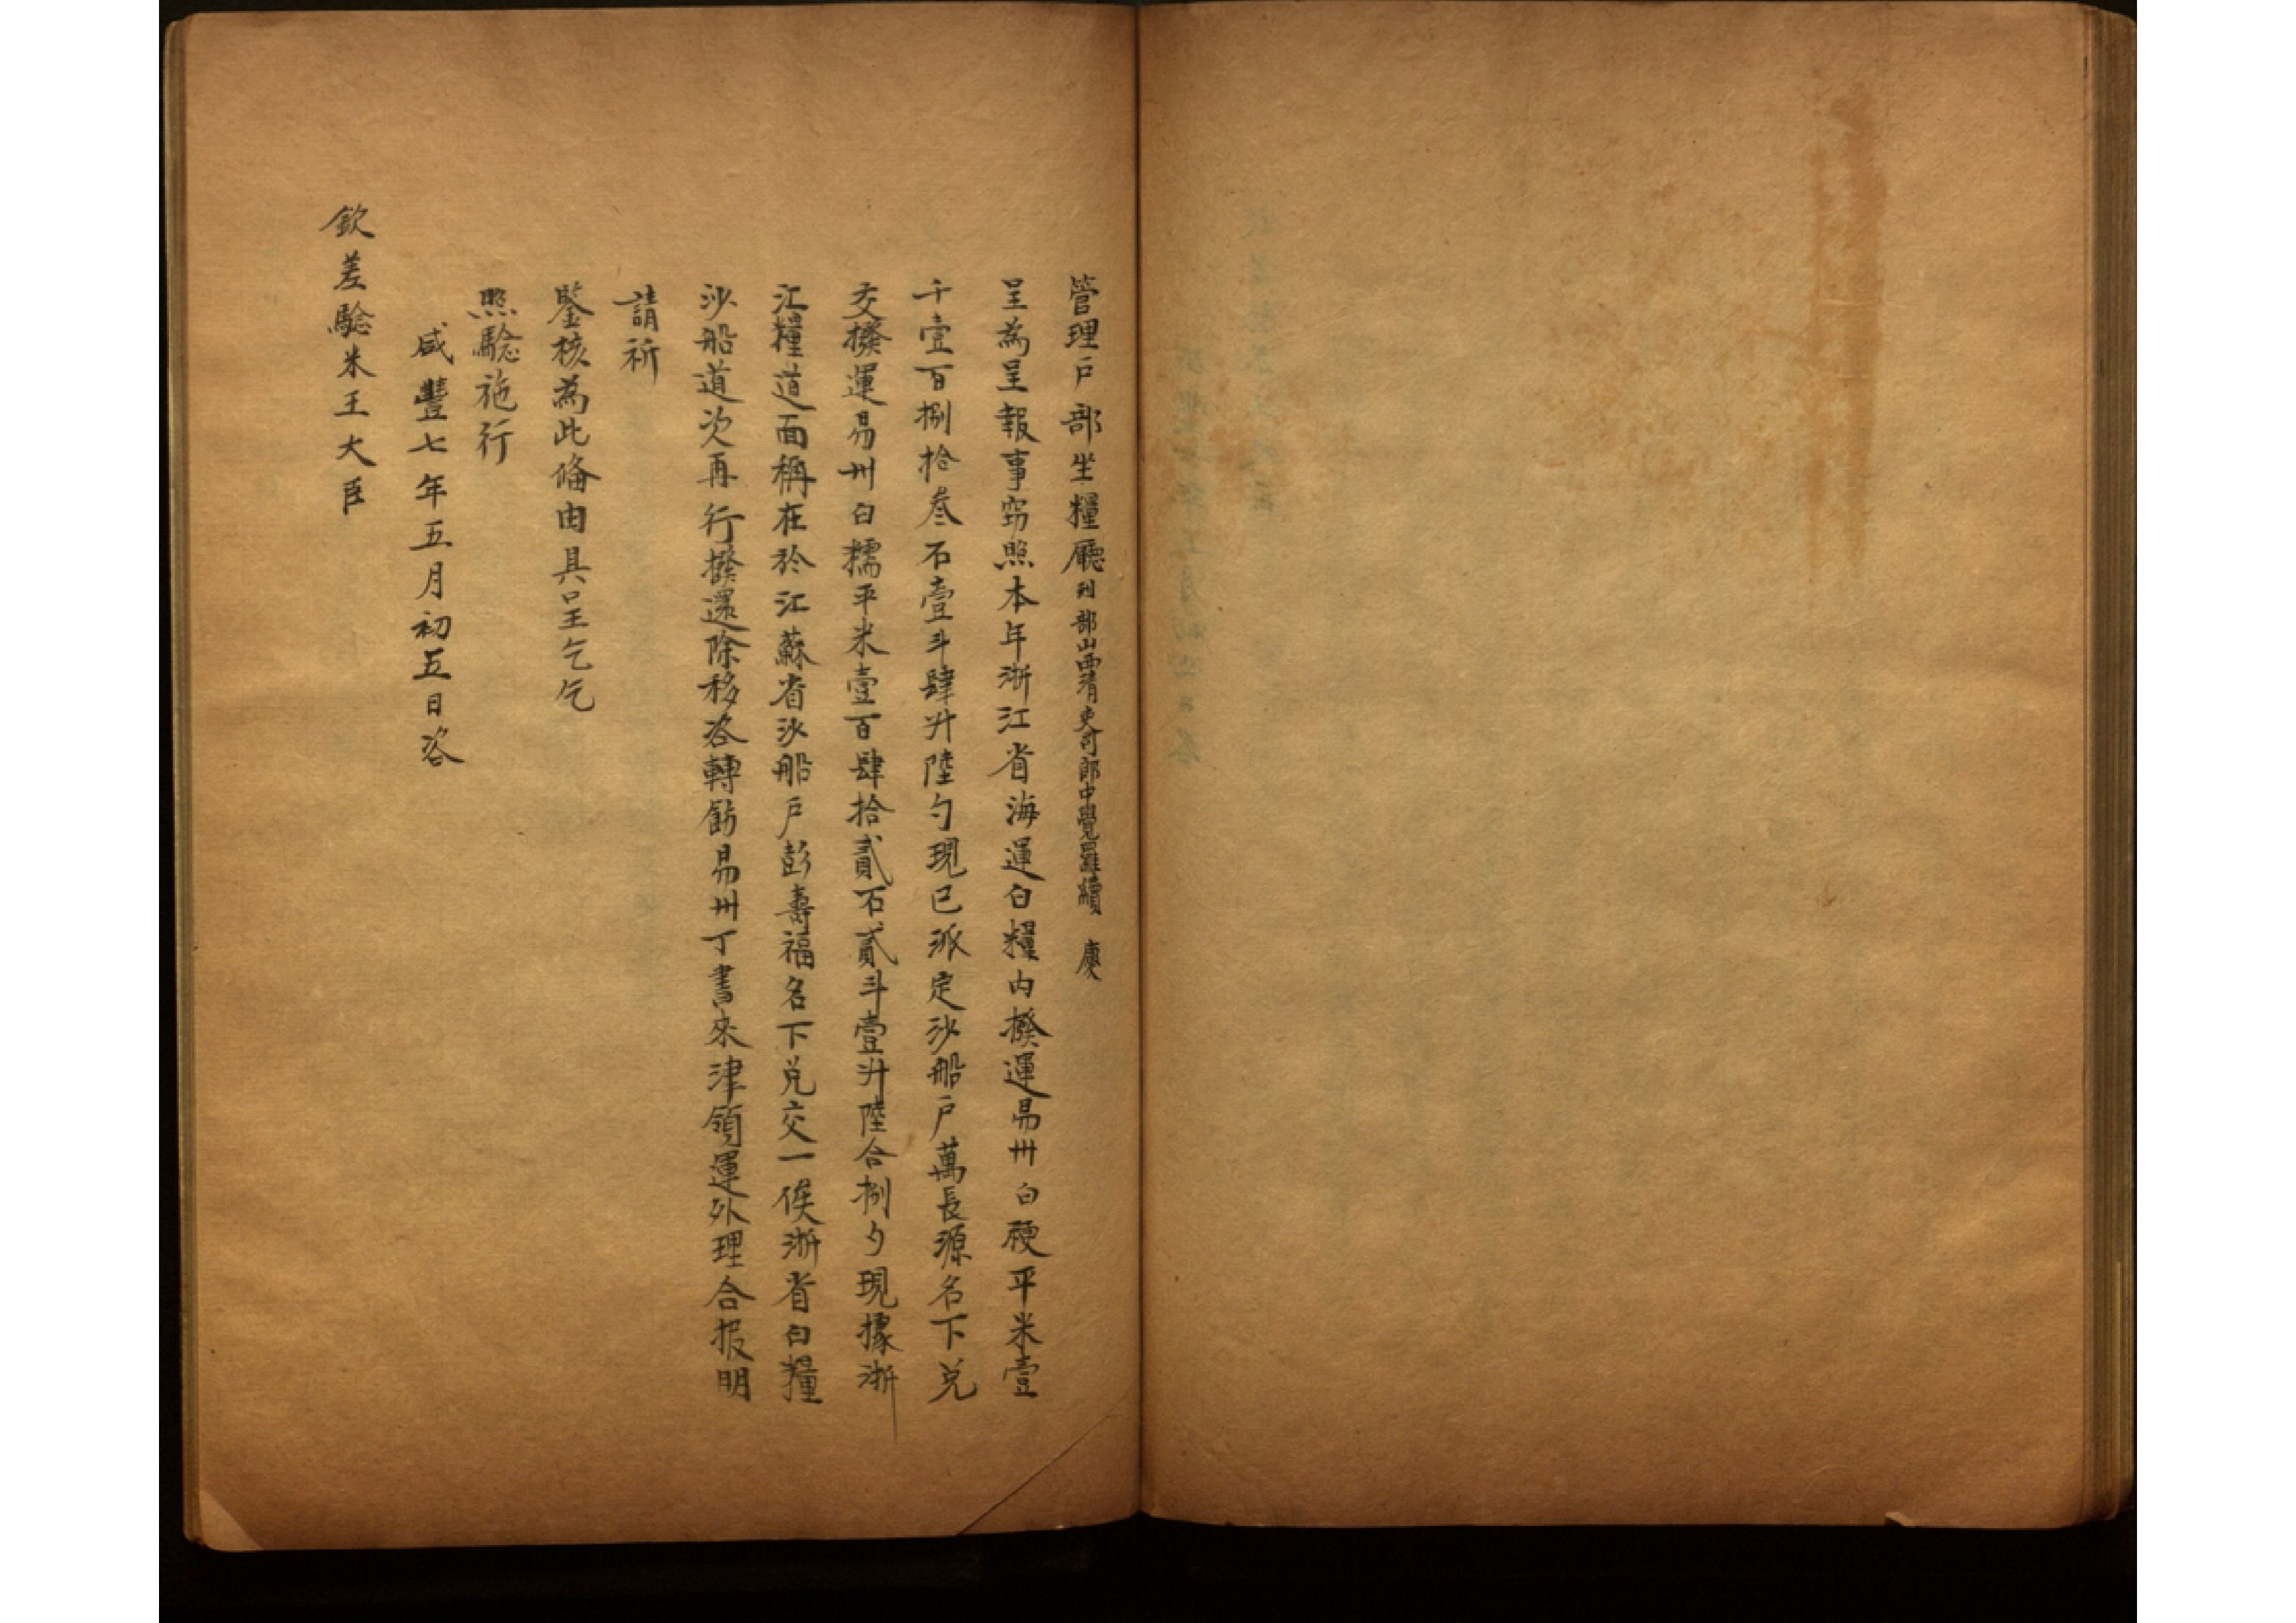 管理戶部坐糧廳刑部山西清吏司郎中覺羅續 慶
呈為呈報事窃照本年浙江省海運白糧内撥運易州白粳平米壹
千壹百捌拾叁石壹斗肆升陸勺現已派定沙船戶萬長源名下兑
交撥運易州白糯平米壹百肆拾貳石貳斗壹升陸合捌勺現據浙
江糧道面稱在於江蘇省沙船戶彭壽福名下兑交一俟浙省白糧
沙船道次再行撥還除移咨轉飭易州丁書來津領運外理合报明
請祈
鑒核為此俻由具呈乞乞
照騐施行
咸豐七年五月初五日咨
欽差騐米王大臣